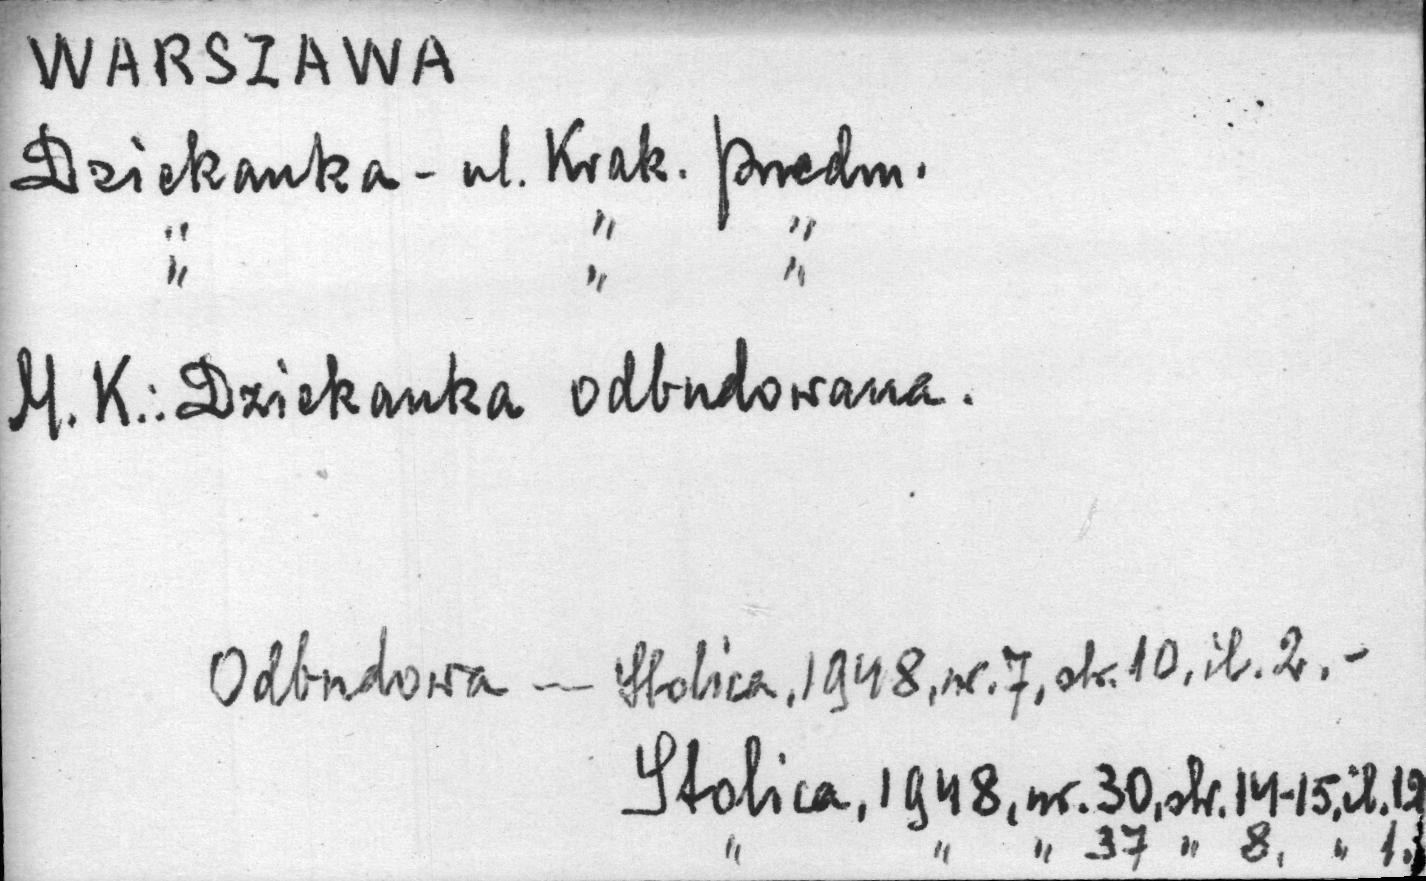 WARSZAWA
Dziekanka - ul. Krak. przedm.
" " "
" " "
M. K.: Dziekanka odbudowana.
Odbudowa — Stolica, 1948, nr. 7, str. 10, il. 2. -
Stolica, 1948, nr. 30, str. 14-15, il. 12
" " " 37 " 8, " 1.